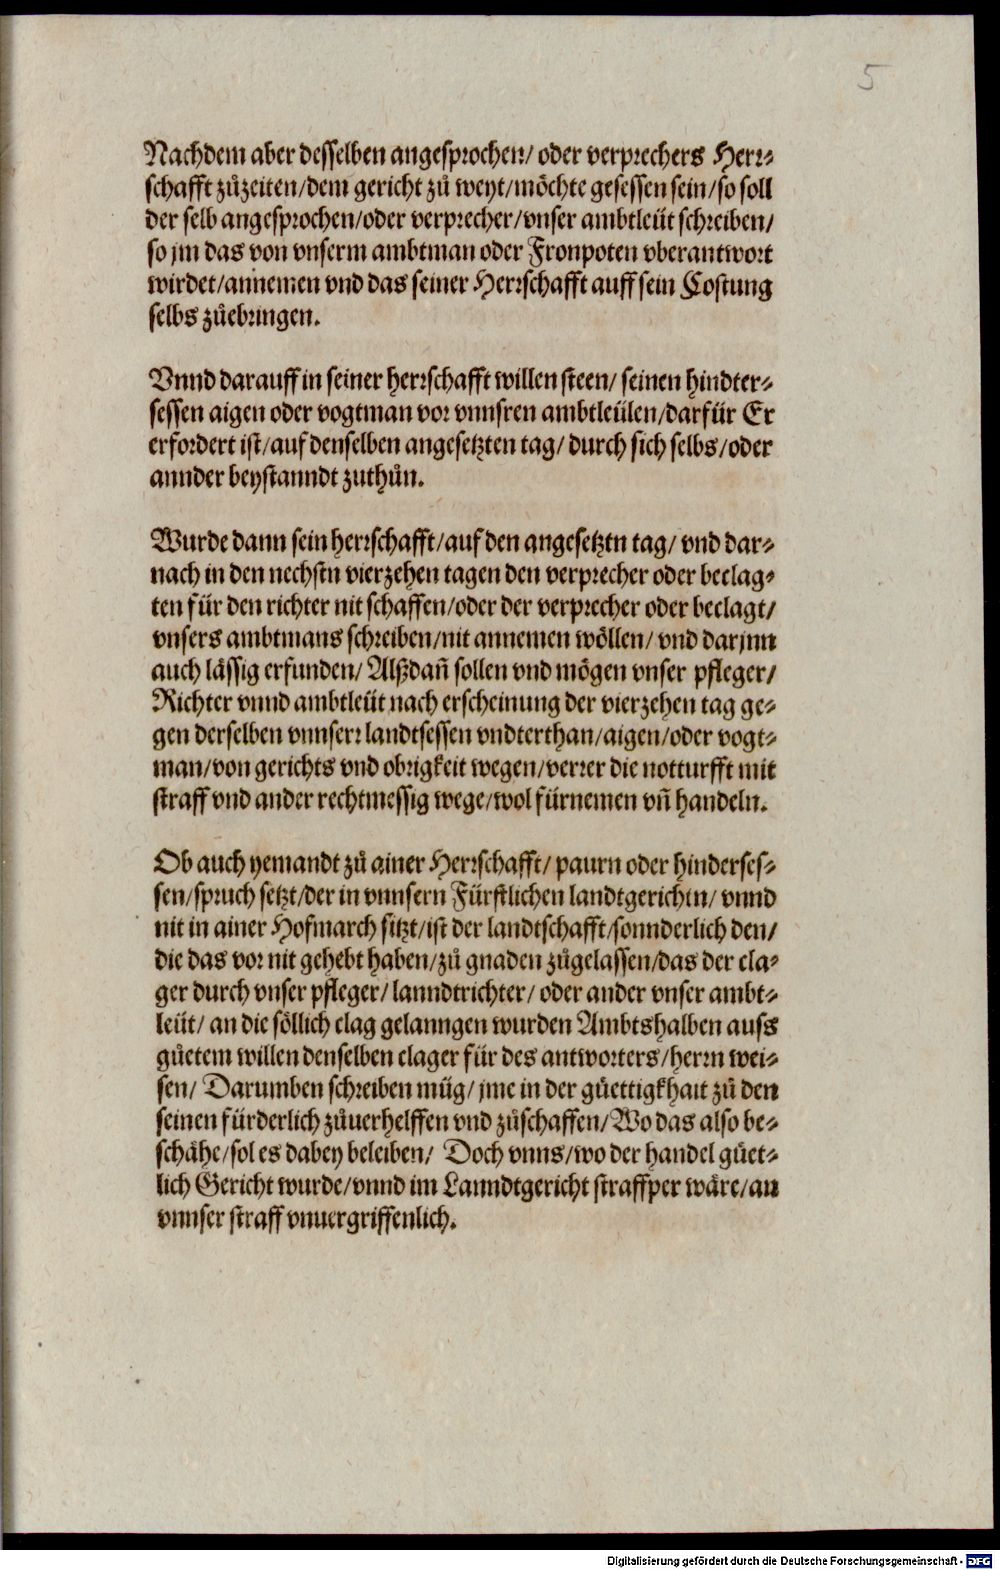 5
Nachdem aber desselben angesprochen/ oder verprechers Herr⸗
schafft zůzeiten/dem gericht zů weyt/möchte gesessen sein/so soll
der selb angesprochen/oder verprecher/vnser ambtleüt schreiben/
so jm das von vnserm ambtman oder Fronpoten vberantwort
wirdet/annemen vnd das seiner Herrschafft auff sein Costung
selbs zůebringen.
Vnnd darauff in seiner herrschafft willen steen/ seinen hindter⸗
sessen aigen oder vogtman vor vnnsren ambtleülen/darfür Er
erfordert ist/auf denselben angesetzten tag/ durch sich selbs/oder
annder beystanndt zuthůn.
Wurde dann sein herrschafft/auf den angesetztn tag/ vnd dar⸗
nach in den nechstn vierzehen tagen den verprecher oder beclag⸗
ten für den richter nit schaffen/oder der verprecher oder beclagt/
vnsers ambtmans schreiben/nit annemen wöllen/ vnd darjnn
auch lässig erfunden/ Alßdañ sollen vnd mögen vnser pfleger/
Richter vnnd ambtleüt nach erscheinung der vierzehen tag ge⸗
gen derselben vnnserr landtsessen vndterthan/aigen/oder vogt⸗
man/von gerichts vnd obrigkeit wegen/verrer die notturfft mit
straff vnd ander rechtmessig wege/wol fürnemen vñ handeln.
Ob auch yemandt zů ainer Herrschafft/ paurn oder hinderses⸗
sen/spruch setzt/der in vnnsern Fürstlichen landtgerichtn/ vnnd
nit in ainer Hofmarch sitzt/ist der landtschafft/sonnderlich den/
die das vor nit gehebt haben/zů gnaden zůgelassen/das der cla⸗
ger durch vnser pfleger/ lanndtrichter/ oder ander vnser ambt⸗
leüt/ an die söllich clag gelanngen wurden Ambtshalben auss
gůetem willen denselben clager für des antworters/herrn wei⸗
sen/ Darumben schreiben müg/ jme in der güettigkhait zů den
seinen fürderlich zůuerhelffen vnd zůschaffen/Wo das also be⸗
schähe/sol es dabey beleiben/ Doch vnns/wo der handel güet⸗
lich Gericht wurde/vnnd im Lanndtgericht straffper wäre/an
vnnser straff vnuergriffenlich.
Digitalisierung gefördert durch die Deutsche Forschungsgemeinschaft - DFG